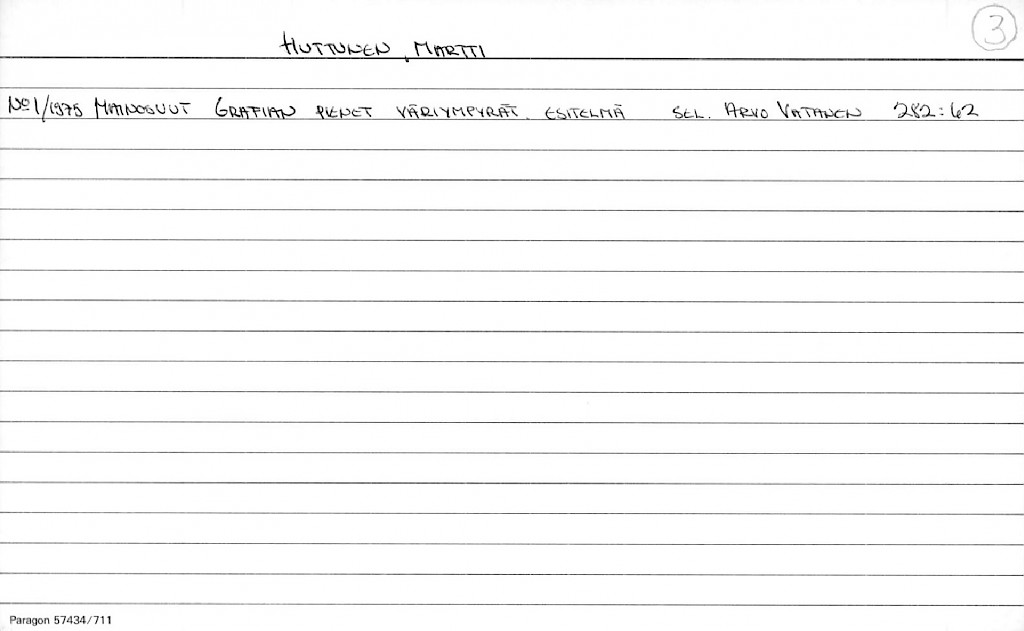 3
HUTTUNEN, MARTTI
No 1/1975 MAINOSUUT GRAFIAN PIENET VÄRIYMPYRÄT. ESITELMÄ SEL. ARVO VATANEN 282:62
Paragon 57434/711